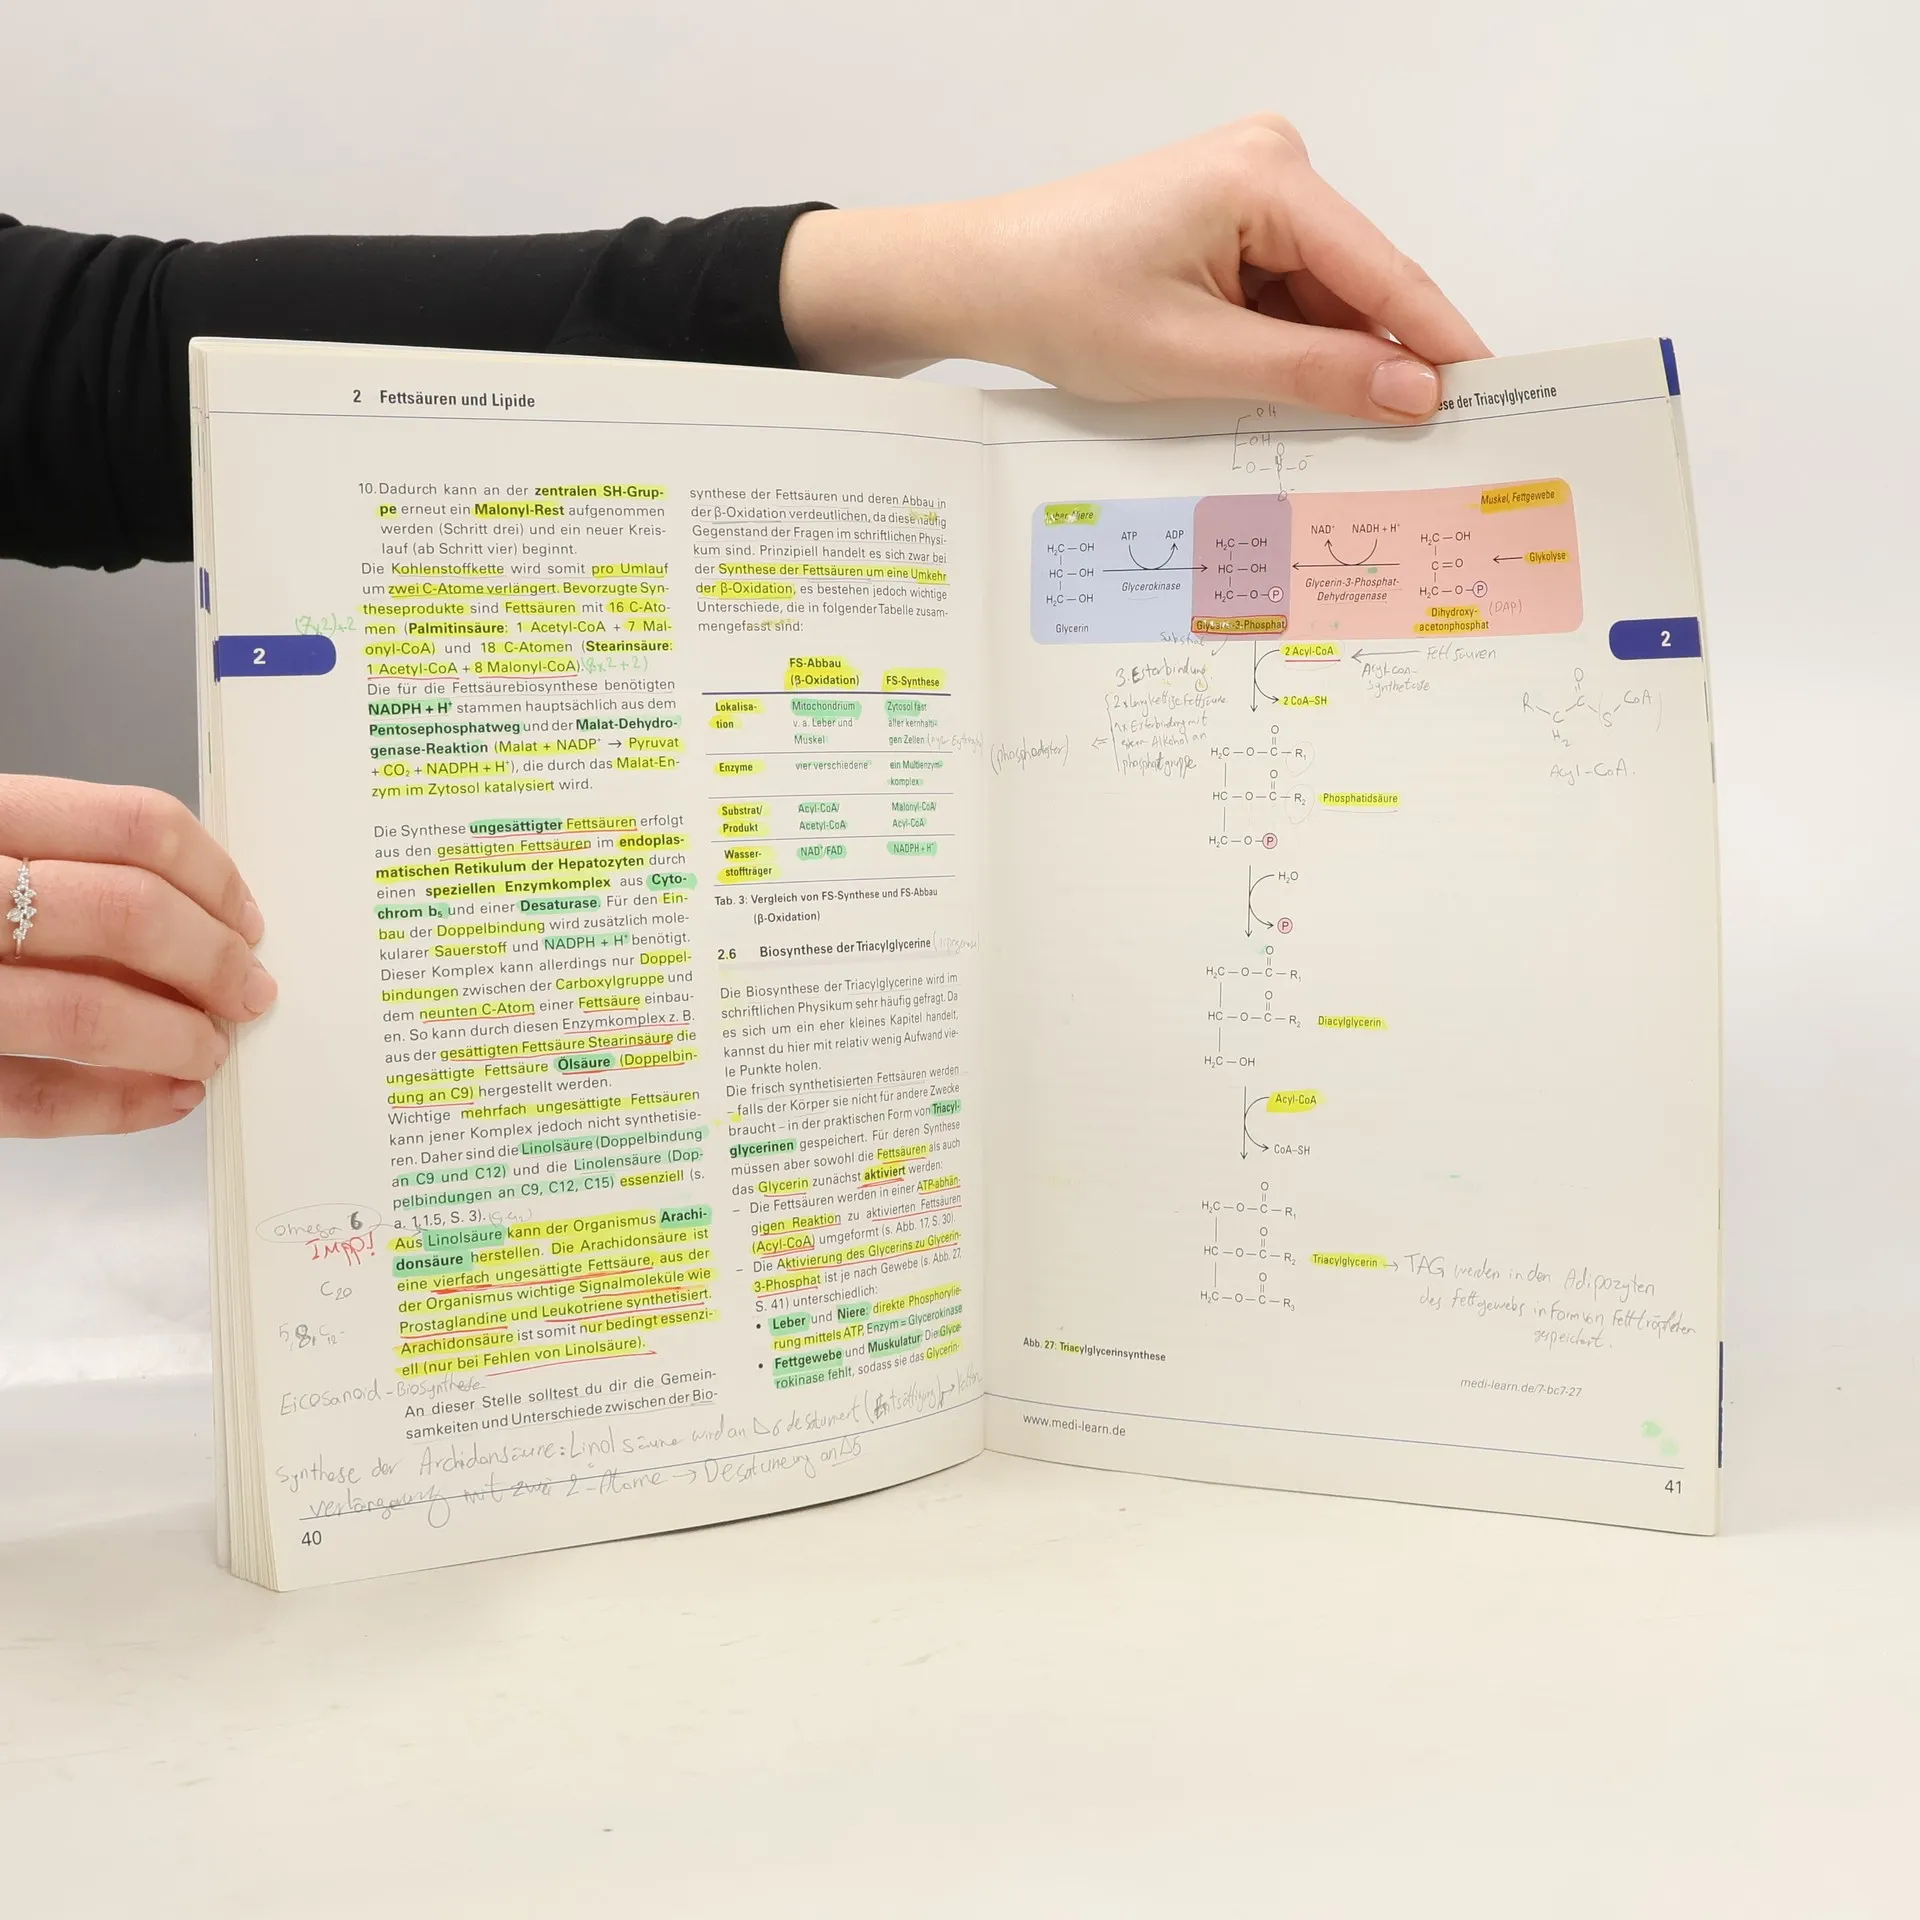 2 Fettsäuren und Lipide
10. Dadurch kann an der zentralen SH-Grup-
pe erneut ein Malonyl-Rest aufgenommen
werden (Schritt drei) und ein neuer Kreis-
lauf (ab Schritt vier) beginnt.
Die Kohlenstoffkette wird somit pro Umlauf
um zwei C-Atome verlängert. Bevorzugte Syn-
theseprodukte sind Fettsäuren mit 16 C-Ato-
men (Palmitinsäure: 1 Acetyl-CoA + 7 Mal-
onyl-CoA) und 18 C-Atomen (Stearinsäure:
1 Acetyl-CoA + 8 Malonyl-CoA). (8x2+2)
Die für die Fettsäurebiosynthese benötigten
NADPH + H⁺ stammen hauptsächlich aus dem
Pentosephosphatweg und der Malat-Dehydro-
genase-Reaktion (Malat + NADP⁺ → Pyruvat
+ CO₂ + NADPH + H⁺), die durch das Malat-En-
zym im Zytosol katalysiert wird.
Die Synthese ungesättigter Fettsäuren erfolgt
aus den gesättigten Fettsäuren im endoplas-
matischen Retikulum der Hepatozyten durch
einen speziellen Enzymkomplex aus Cyto-
chrom b₅ und einer Desaturase. Für den Ein-
bau der Doppelbindung wird zusätzlich mole-
kularer Sauerstoff und NADPH + H⁺ benötigt.
Dieser Komplex kann allerdings nur Doppel-
bindungen zwischen der Carboxylgruppe und
dem neunten C-Atom einer Fettsäure einbau-
en. So kann durch diesen Enzymkomplex z. B.
aus der gesättigten Fettsäure Stearinsäure die
ungesättigte Fettsäure Ölsäure (Doppelbin-
dung an C9) hergestellt werden.
Wichtige mehrfach ungesättigte Fettsäuren
kann jener Komplex jedoch nicht synthetisie-
ren. Daher sind die Linolsäure (Doppelbindung
an C9 und C12) und die Linolensäure (Dop-
pelbindungen an C9, C12, C15) essenziell (s.
a. 1.1.5, S. 3).
omega 6
IMPP!
C20
Aus Linolsäure kann der Organismus Arachi-
donsäure herstellen. Die Arachidonsäure ist
eine vierfach ungesättigte Fettsäure, aus der
der Organismus wichtige Signalmoleküle wie
Prostaglandine und Leukotriene synthetisiert.
Arachidonsäure ist somit nur bedingt essenzi-
ell (nur bei Fehlen von Linolsäure).
Eicosanoid-Biosynthese
An dieser Stelle solltest du dir die Gemein-
samkeiten und Unterschiede zwischen der Bio-
synthese der Fettsäuren und deren Abbau in
der β-Oxidation verdeutlichen, da diese häufig
Gegenstand der Fragen im schriftlichen Physi-
kum sind. Prinzipiell handelt es sich zwar bei
der Synthese der Fettsäuren um eine Umkehr
der β-Oxidation, es bestehen jedoch wichtige
Unterschiede, die in folgender Tabelle zusam-
mengefasst sind:
FS-Abbau (β-Oxidation) FS-Synthese
Lokalisa-tion Mitochondrium v. a. Leber und Muskel Zytosol fast aller kernhalti-gen Zellen
Enzyme vier verschiedene ein Multienzym-komplex
Substrat/Produkt Acyl-CoA/Acetyl-CoA Malonyl-CoA/Acyl-CoA
Wasser-stoffträger NAD⁺/FAD NADPH + H⁺
Tab. 3: Vergleich von FS-Synthese und FS-Abbau
(β-Oxidation)
2.6 Biosynthese der Triacylglycerine
Die Biosynthese der Triacylglycerine wird im
schriftlichen Physikum sehr häufig gefragt. Da
es sich um ein eher kleines Kapitel handelt,
kannst du hier mit relativ wenig Aufwand vie-
le Punkte holen.
Die frisch synthetisierten Fettsäuren werden
– falls der Körper sie nicht für andere Zwecke
braucht – in der praktischen Form von Triacyl-
glycerinen gespeichert. Für deren Synthese
müssen aber sowohl die Fettsäuren als auch
das Glycerin zunächst aktiviert werden:
– Die Fettsäuren werden in einer ATP-abhän-
gigen Reaktion zu aktivierten Fettsäuren
(Acyl-CoA) umgeformt (s. Abb. 17, S. 30).
– Die Aktivierung des Glycerins zu Glycerin-
3-Phosphat ist je nach Gewebe (s. Abb. 27,
S. 41) unterschiedlich:
• Leber und Niere: direkte Phosphorylie-
rung mittels ATP, Enzym = Glycerokinase
• Fettgewebe und Muskulatur: Die Glyce-
rokinase fehlt, sodass sie das Glycerin-
Synthese der Archidonsäure: Linolsäure wird an Δ6
verlängerung mit zwei 2-Atome → an Δ5
40
2
ese der Triacylglycerine
OH
OH
O-P-O⁻
Muskel, Fettgewebe
H₂C — OH
HC — OH
H₂C — OH
Glycerin
ATP ADP
Glycerokinase
H₂C — OH
HC — OH
H₂C — O — P
Glycerin-3-Phosphat
NAD⁺ NADH + H⁺
Glycerin-3-Phosphat-
Dehydrogenase
H₂C — OH
C = O
H₂C — O — P
Dihydroxy-
acetonphosphat (DAP)
Glykolyse
Substrat
2 Acyl-CoA
Fettsäuren
2 CoA–SH
3. Esterbindung
R C C S CoA
O
H₂
Acyl-CoA.
O
H₂C — O — C — R₁
O
HC — O — C — R₂ Phosphatidsäure
H₂C — O — P
H₂O
P
O
H₂C — O — C — R₁
O
HC — O — C — R₂ Diacylglycerin
H₂C — OH
Acyl-CoA
CoA–SH
O
H₂C — O — C — R₁
O
HC — O — C — R₂ Triacylglycerin → TAG werden in den Adipozyten
des Fettgewebs in Form von Fetttröpfchen
gespeichert.
O
H₂C — O — C — R₃
Abb. 27: Triacylglycerinsynthese
medi-learn.de/7-bc7-27
www.medi-learn.de
41
2